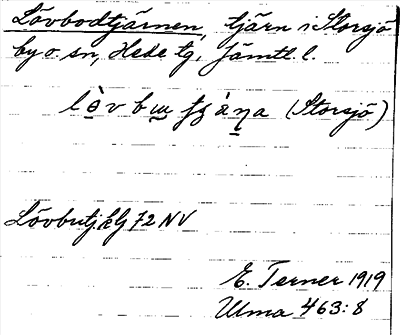 Lövbodtjärnen, tjärn i Storsjö
by o. sn, Hede tg, Jämtl. l.
(Storsjö)
Lövbutj. 72 NV
E. Terner 1919
Ulma 463:8